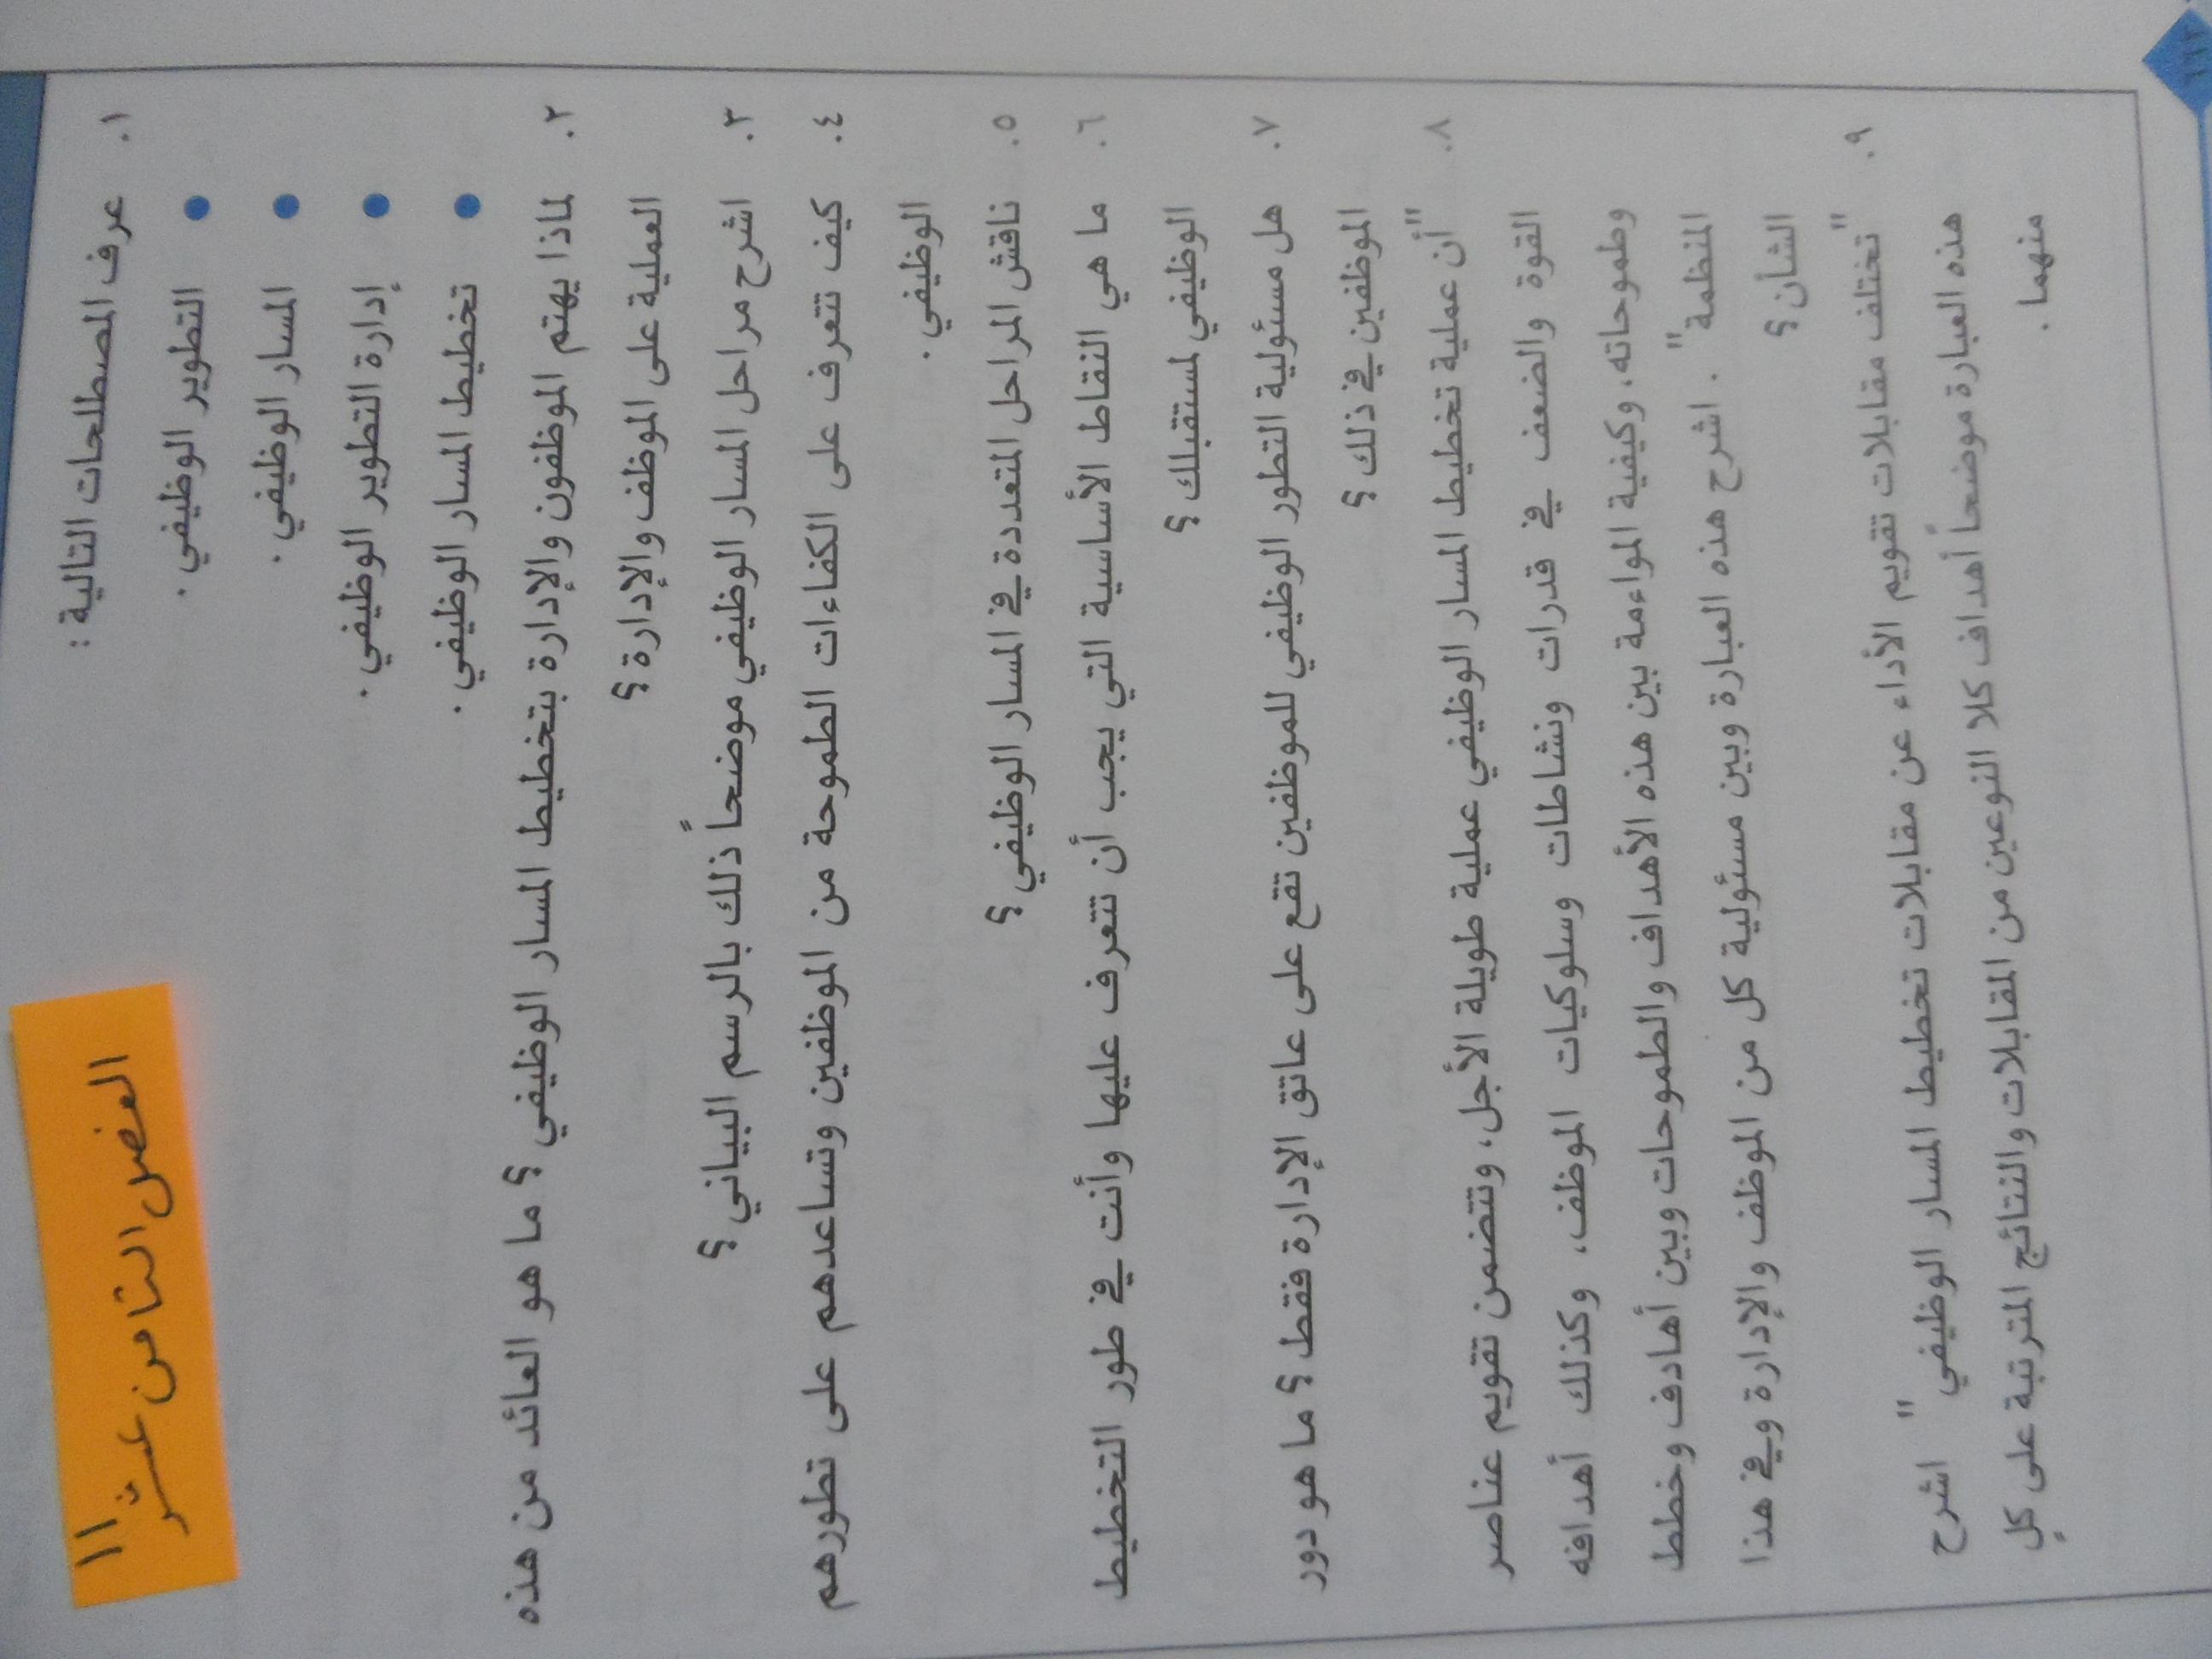 الفصل الثامن عشر
١١
١. عرف المصطلحات التالية :
● التطوير الوظيفي .
● المسار الوظيفي .
● إدارة التطوير الوظيفي .
● تخطيط المسار الوظيفي .
٢. لماذا يهتم الموظفون والإدارة بتخطيط المسار الوظيفي ؟ ما هو العائد من هذه
العملية على الموظف والإدارة ؟
٣. اشرح مراحل المسار الوظيفي موضحاً ذلك بالرسم البياني ؟
٤. كيف تتعرف على الكفاءات الطموحة من الموظفين وتساعدهم على تطورهم
الوظيفي .
٥. ناقش المراحل المتعددة في المسار الوظيفي ؟
٦. ما هي النقاط الأساسية التي يجب أن تتعرف عليها وأنت في طور التخطيط
الوظيفي لمستقبلك ؟
٧. هل مسئولية التطور الوظيفي للموظفين تقع على عاتق الإدارة فقط ؟ ما هو دور
الموظفين في ذلك ؟
٨. "أن عملية تخطيط المسار الوظيفي عملية طويلة الأجل، وتتضمن تقويم عناصر
القوة والضعف في قدرات ونشاطات وسلوكيات الموظف، وكذلك أهدافه
وطموحاته، وكيفية المواءمة بين هذه الأهداف والطموحات وبين أهادف وخطط
المنظمة" . اشرح هذه العبارة وبين مسئولية كل من الموظف والإدارة وفي هذا
الشأن ؟
٩. "تختلف مقابلات تقويم الأداء عن مقابلات تخطيط المسار الوظيفي" اشرح
هذه العبارة موضحاً أهداف كلا النوعين من المقابلات والنتائج المترتبة على كلٍ
منهما .